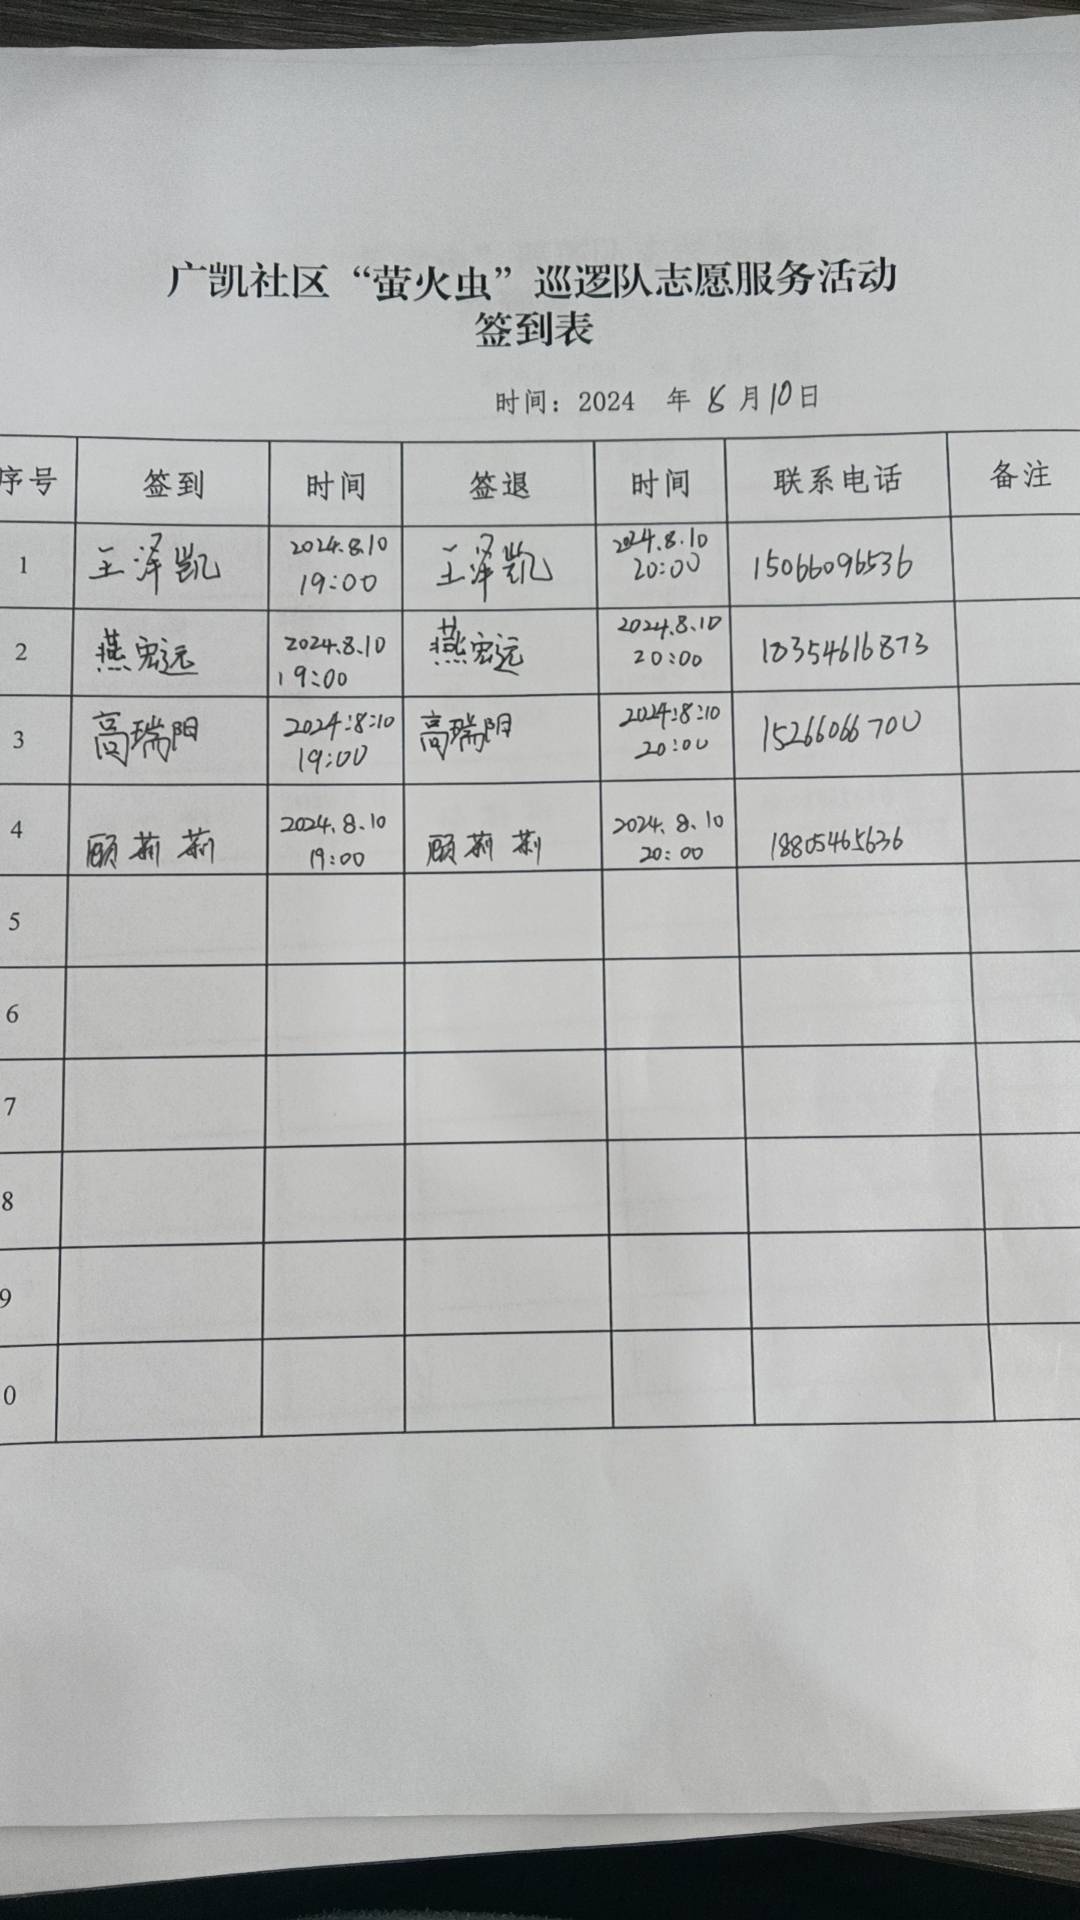 广凯社区“萤火虫”巡逻队志愿服务活动
签到表
时间：2024 年 8 月 10 日
序号 签到 时间 签退 时间 联系电话 备注
1 王泽凯 2024.8.10 19:00 王泽凯 2024.8.10 20:00 15066096536
2 燕宏远 2024.8.10 19:00 燕宏远 2024.8.10 20:00 18354616873
3 高瑞阳 2024:8:10 19:00 高瑞阳 2024:8:10 20:00 15266066700
4 顾莉莉 2024.8.10 19:00 顾莉莉 2024.8.10 20:00 18805465636
5
6
7
8
9
0